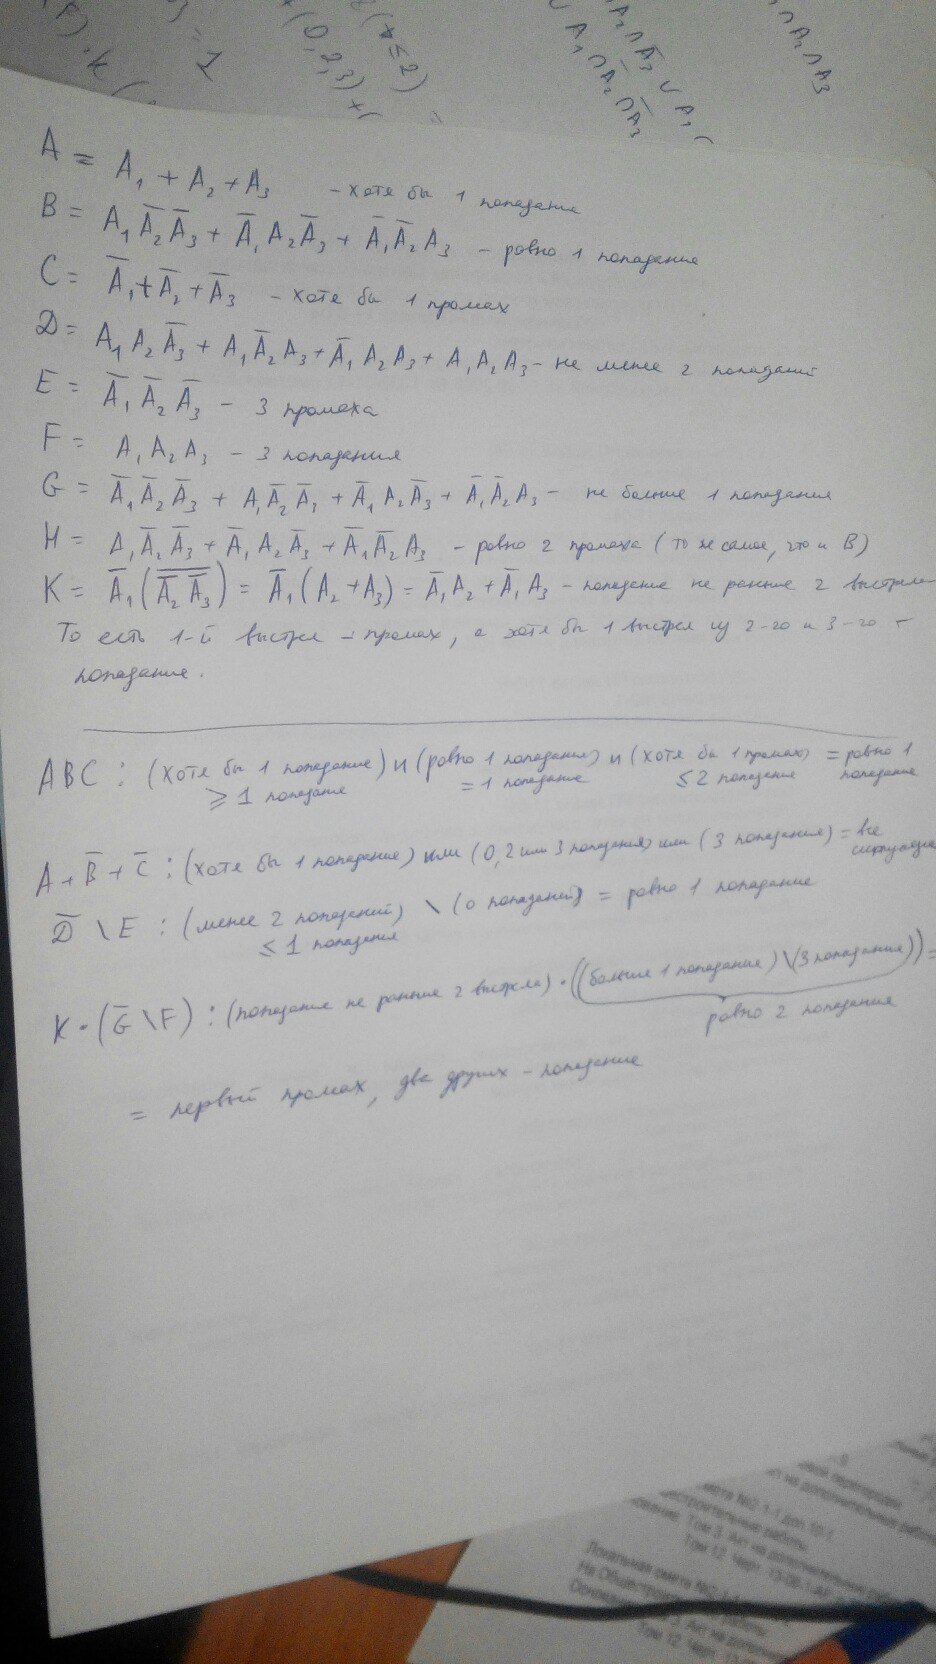 (x≤2) =
(0,2,3) +
= 1
A₂∩Ā₃ ∪ A₁
∪ A₁∩Ā₂∩Ā₃
∩A₂∩A₃
A = A₁ + A₂ + A₃ - хотя бы 1 попадание
B = A₁Ā₂Ā₃ + Ā₁A₂Ā₃ + Ā₁Ā₂A₃ - ровно 1 попадание
C = Ā₁ + Ā₂ + Ā₃ - хотя бы 1 промах
D = A₁A₂Ā₃ + A₁Ā₂A₃ + Ā₁A₂A₃ + A₁A₂A₃ - не менее 2 попаданий
E = Ā₁Ā₂Ā₃ - 3 промаха
F = A₁A₂A₃ - 3 попадания
G = Ā₁Ā₂Ā₃ + A₁Ā₂Ā₃ + Ā₁A₂Ā₃ + Ā₁Ā₂A₃ - не больше 1 попадания
H = A₁Ā₂Ā₃ + Ā₁A₂Ā₃ + Ā₁Ā₂A₃ - ровно 2 промаха (то же самое, что и B)
K = Ā₁(\overline{Ā₂Ā₃}) = Ā₁(A₂+A₃) = Ā₁A₂ + Ā₁A₃ - попадание не раньше 2 выстрела
То есть 1-й выстрел - промах, а хотя бы 1 выстрел из 2-го и 3-го -
попадание.
ABC : (хотя бы 1 попадание) и (ровно 1 попадание) и (хотя бы 1 промах) = ровно 1
≥ 1 попадание = 1 попадание ≤ 2 попадания попадание
A + B̄ + C̄ : (хотя бы 1 попадание) или (0, 2 или 3 попадания) или (3 попадания) = все
ситуации
D̄ \ E : (менее 2 попаданий) \ (0 попаданий) = ровно 1 попадание
≤ 1 попадания
K · (Ḡ \ F) : (попадание не раньше 2 выстрела) · ((больше 1 попадания) \ (3 попадания)) =
ровно 2 попадания
= первый промах, два других - попадание
Том 3. Акт на дополнительные
Том 12. Черт.
Локальная смета №2-1-
На Общестроительные
Том 12. Черт.